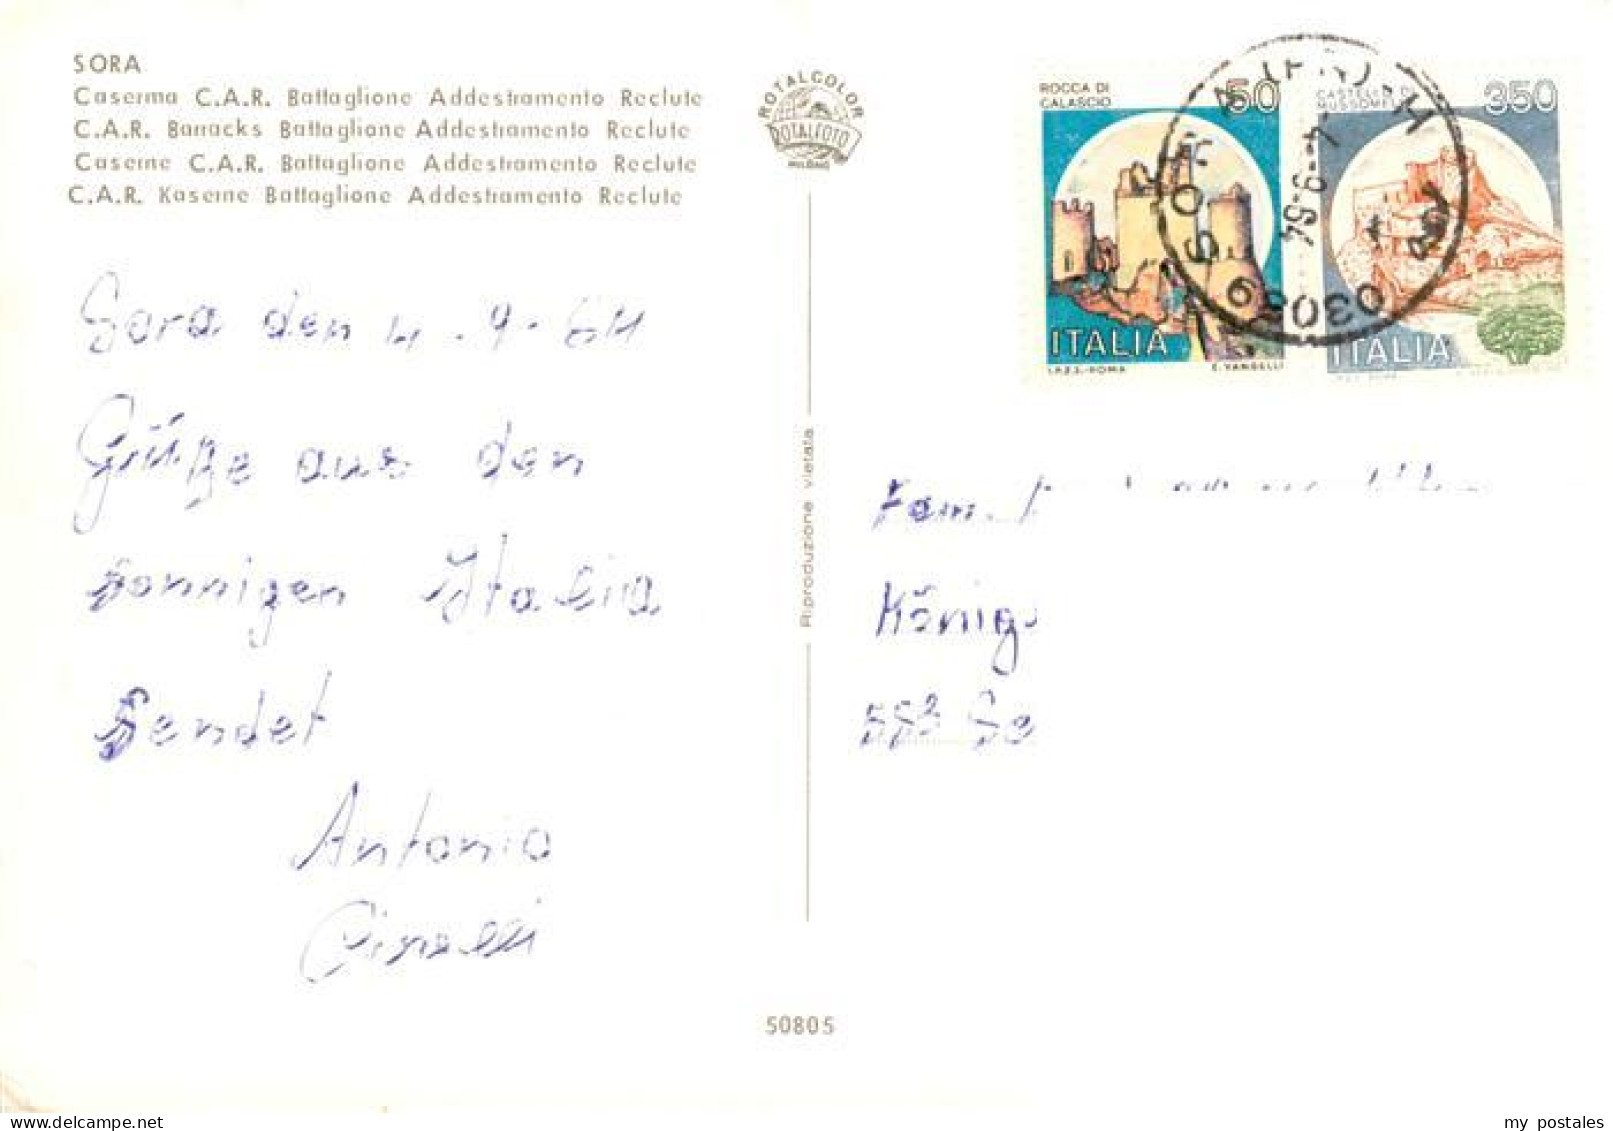 SORA
Caserma C.A.R. Battaglione Addestramento Reclute
C.A.R. Barracks Battaglione Addestramento Reclute
Caserne C.A.R. Battaglione Addestramento Reclute
C.A.R. Kaserne Battaglione Addestramento Reclute
ROTALCOLOR
ROTALFOTO
MILANO
ROCCA DI
CALASCIO
50
ITALIA
I.P.Z.S.-ROMA E. VANGELLI
CASTELLO DI
MUSSOMELI
350
ITALIA
SORA (FR)
03039
Sora den 4.9.84
Grüße aus den
sonnigen Italia
Sendet
Antonio
Cinelli
Riproduzione vietata
Fam.
König
553 Ge
50805
my_postales